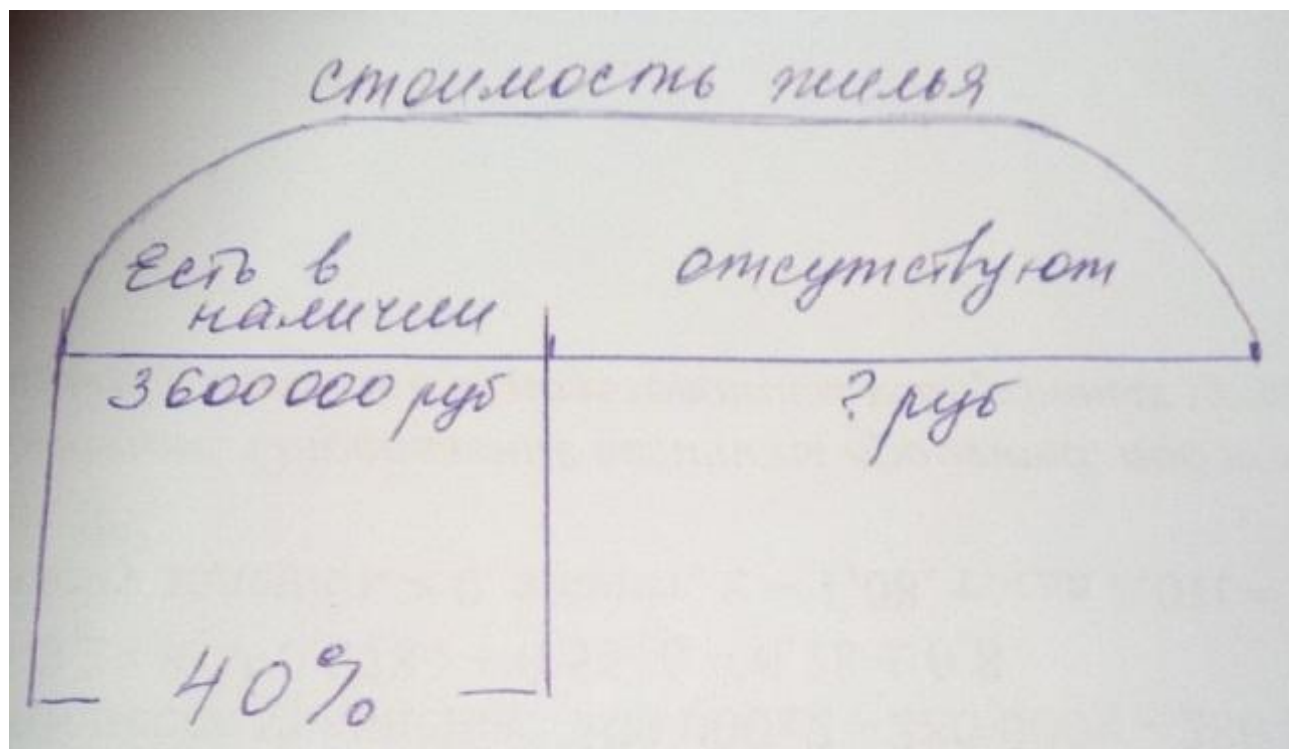 стоимость жилья
Есть в
наличии
отсутствуют
3600000 руб
? руб
40%